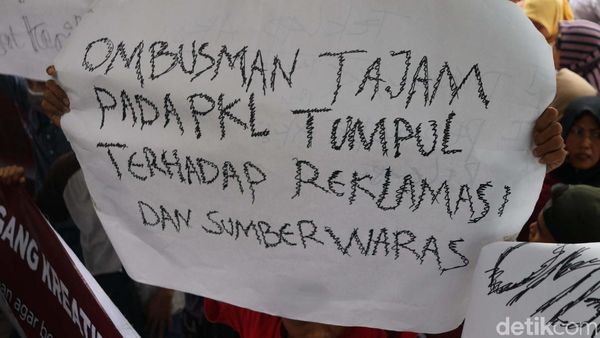 OMBUSMAN TAJAM
PADA PKL TUMPUL
TERHADAP REKLAMASI
DAN SUMBER WARAS
GANG KREATI
an agar be
detikcom